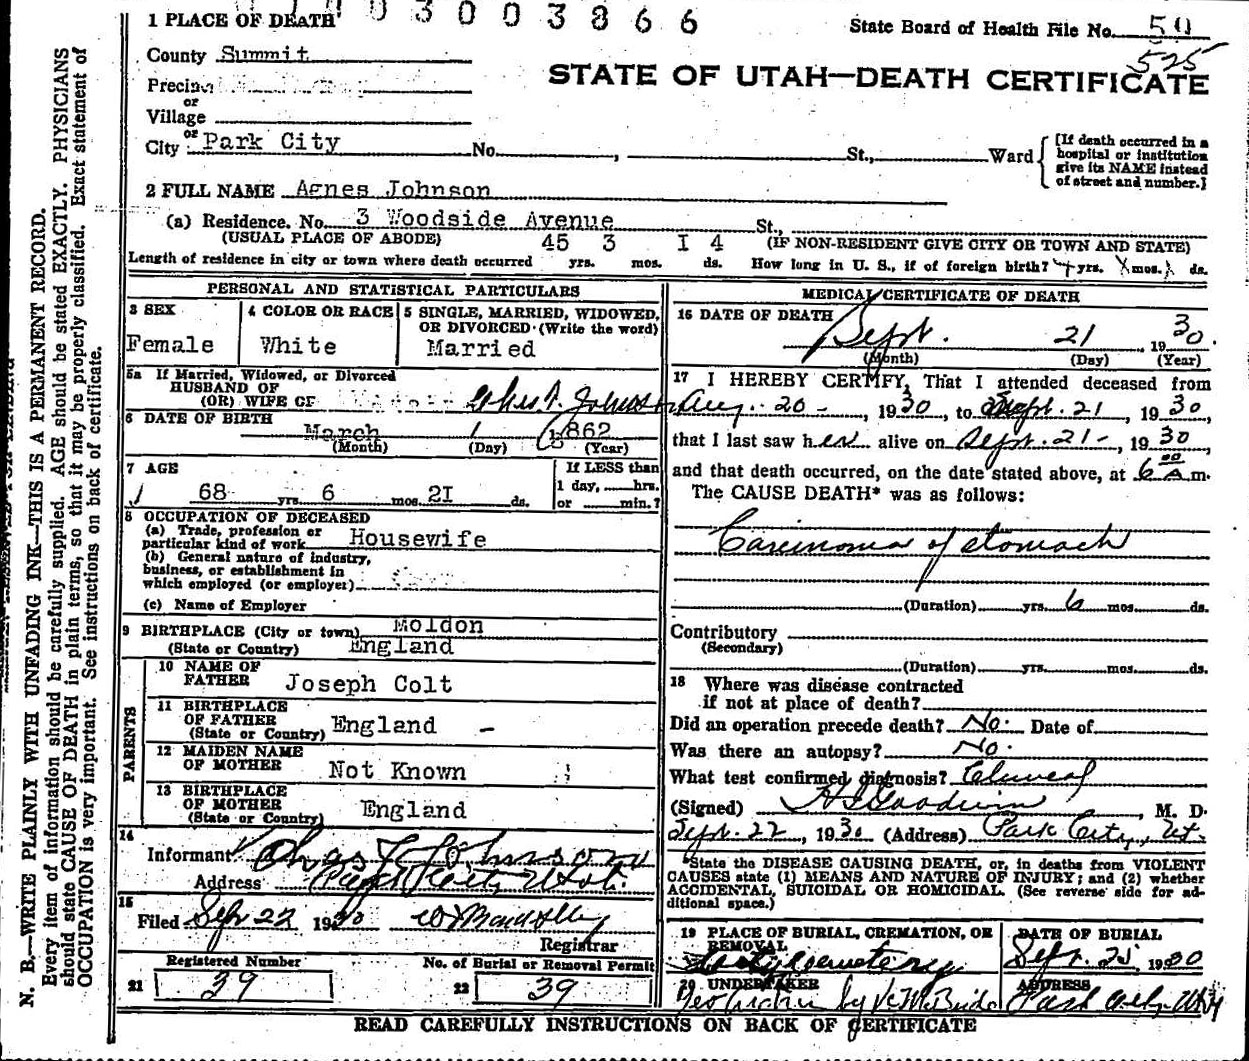 1 PLACE OF DEATH 0 3 0 0 3 8 6 6
State Board of Health File No. 50
525
County Summit
STATE OF UTAH—DEATH CERTIFICATE
Precinct
or
Village
or
City Park City No. , St., Ward
[If death occurred in a hospital or institution give its NAME instead of street and number.]
2 FULL NAME Agnes Johnson
(a) Residence. No. 3 Woodside Avenue St.,
(USUAL PLACE OF ABODE) (IF NON-RESIDENT GIVE CITY OR TOWN AND STATE)
Length of residence in city or town where death occurred 45 yrs. 3 mos. I4 ds. How long in U. S., if of foreign birth? yrs. mos. ds.
PERSONAL AND STATISTICAL PARTICULARS
3 SEX
Female
4 COLOR OR RACE
White
5 SINGLE, MARRIED, WIDOWED,
OR DIVORCED (Write the word)
Married
5a If Married, Widowed, or Divorced
HUSBAND OF
(OR) WIFE OF Johnson
6 DATE OF BIRTH
March 1 1862
(Month) (Day) (Year)
7 AGE
68 yrs. 6 mos. 2I ds.
If LESS than
1 day, hrs.
or min.?
8 OCCUPATION OF DECEASED
(a) Trade, profession or
particular kind of work Housewife
(b) General nature of industry,
business, or establishment in
which employed (or employer)
(c) Name of Employer
9 BIRTHPLACE (City or town) Moldon
(State or Country) England
PARENTS
10 NAME OF
FATHER Joseph Colt
11 BIRTHPLACE
OF FATHER
(State or Country) England -
12 MAIDEN NAME
OF MOTHER Not Known
13 BIRTHPLACE
OF MOTHER
(State or Country) England
14
Informant Chas Johnson
Address Park City Utah.
15
Filed Sep 22 1930
Registrar
Registered Number
21 39
No. of Burial or Removal Permit
22 39
MEDICAL CERTIFICATE OF DEATH
16 DATE OF DEATH
Sept. 21 1930
(Month) (Day) (Year)
17 I HEREBY CERTIFY, That I attended deceased from
Aug. 20 - , 1930, to Sept. 21 , 1930
that I last saw her alive on Sept. 21 - , 1930
and that death occurred, on the date stated above, at 6 00 A m.
The CAUSE DEATH* was as follows:
Carcinoma of stomach
(Duration) yrs. 6 mos. ds.
Contributory
(Secondary)
(Duration) yrs. mos. ds.
18 Where was disease contracted
if not at place of death?
Did an operation precede death? No. Date of
Was there an autopsy? No.
What test confirmed diagnosis? Clinical
(Signed) Goodwin , M. D.
Sept. 22, 1930 (Address) Park City, Ut.
*State the DISEASE CAUSING DEATH, or, in deaths from VIOLENT
CAUSES state (1) MEANS AND NATURE OF INJURY; and (2) whether
ACCIDENTAL, SUICIDAL OR HOMICIDAL. (See reverse side for ad-
ditional space.)
19 PLACE OF BURIAL, CREMATION, OR
REMOVAL
City Cemetery
DATE OF BURIAL
Sept. 25, 1930
20 UNDERTAKER
Geo Archer by McBride
ADDRESS
Park City Utah
READ CAREFULLY INSTRUCTIONS ON BACK OF CERTIFICATE
N. B.—WRITE PLAINLY WITH UNFADING INK—THIS IS A PERMANENT RECORD.
Every item of information should be carefully supplied. AGE should be stated EXACTLY. PHYSICIANS
should state CAUSE OF DEATH in plain terms, so that it may be properly classified. Exact statement of
OCCUPATION is very important. See instructions on back of certificate.